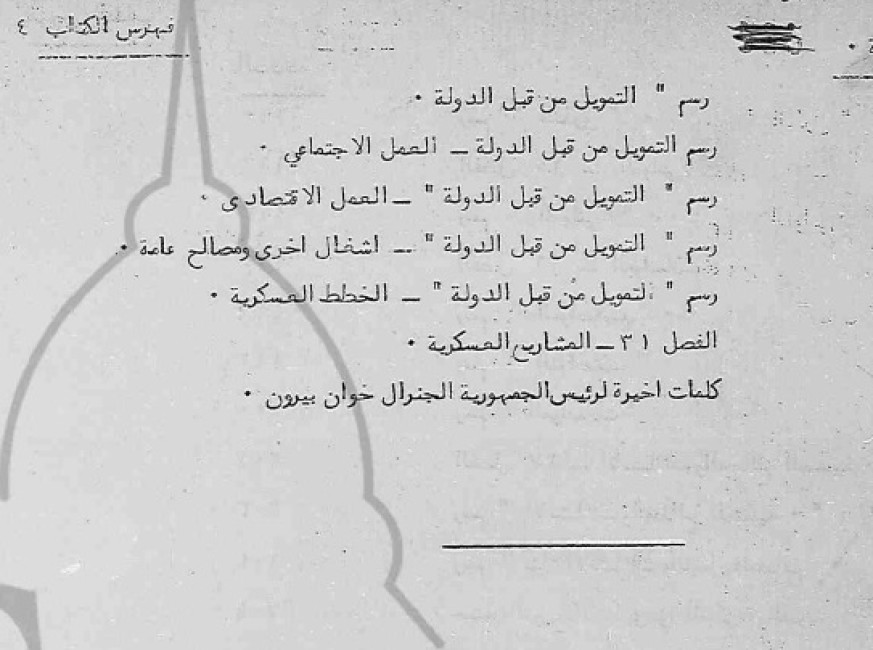 فهرس الكتاب ٤
رسم " التمويل من قبل الدولة ٠
رسم التمويل من قبل الدولة ـ العمل الاجتماعي ٠
رسم " التمويل من قبل الدولة " ـ العمل الاقتصادى ٠
رسم " التمويل من قبل الدولة " ـ اشغال اخرى ومصالح عامة ٠
رسم " التمويل من قبل الدولة " ـ الخطط العسكرية ٠
الفصل ٣١ ـ المشاريع العسكرية ٠
كلمات اخيرة لرئيس الجمهورية الجنرال خوان بيرون ٠